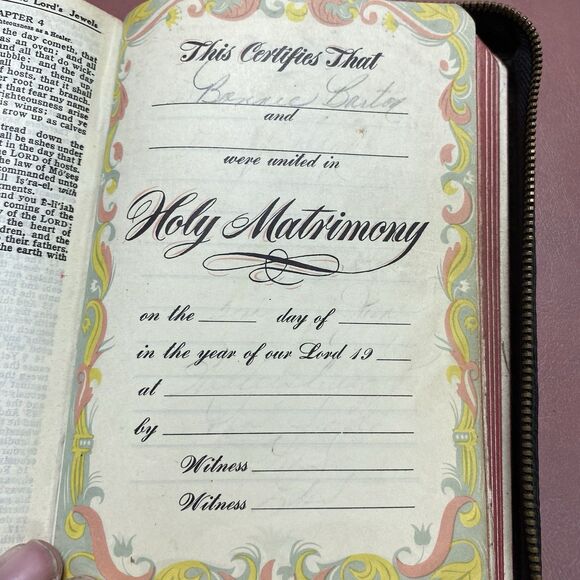 e Lord's Jewels.
APTER 4
the day cometh, that
as an oven; and all
and all that do wick-
ubble: and the day
all burn them up,
of hosts, that it shall
er root nor branch.
u that fear my name
ighteousness arise
is wings; and ye
grow up as calves
tread down the
all be ashes under
t in the day that I
the LORD of hosts.
he law of Mō'ses
commanded unto
ll Iṣ'ra-el, with
gments.
nd you Ē-lī'jah
coming of the
y of the LORD;
the heart of
dren, and the
their fathers,
the earth with
This Certifies That
Bonnie Barton
and
were united in
Holy Matrimony
on the day of
in the year of our Lord 19
at
by
Witness
Witness